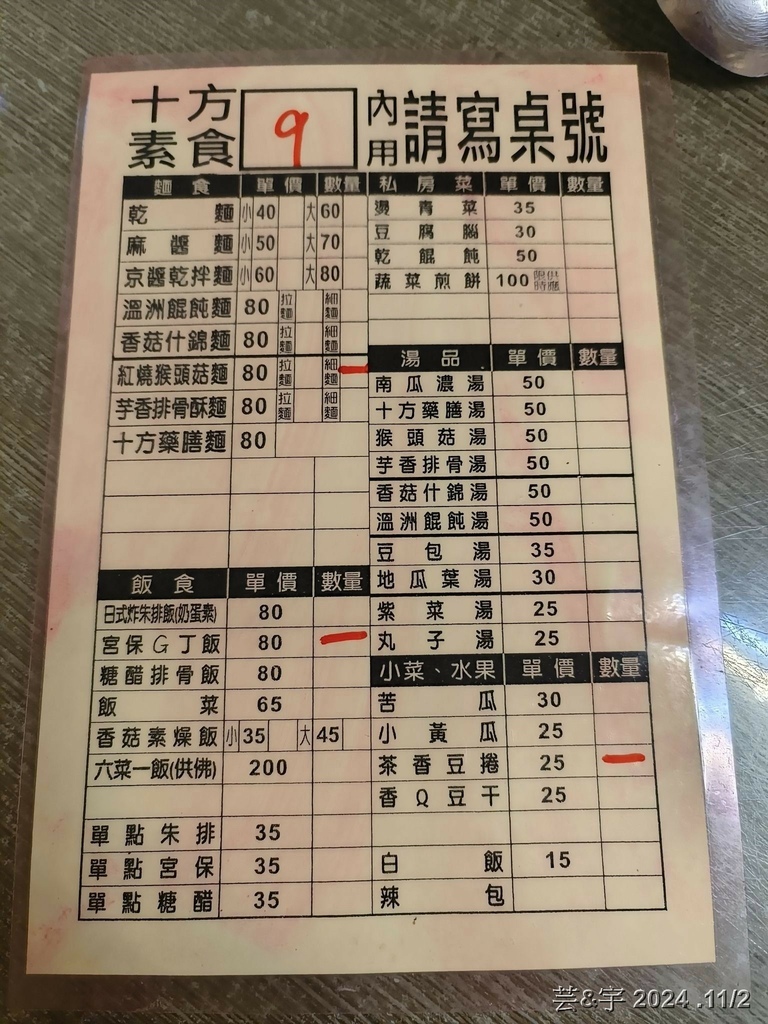 十方
素食
9
內用
請寫桌號
麵食 單價 數量
乾麵 小 40 大 60
麻醬麵 小 50 大 70
京醬乾拌麵 小 60 大 80
溫洲餛飩麵 80 拉麵 細麵
香菇什錦麵 80 拉麵 細麵
紅燒猴頭菇麵 80 拉麵 細麵 一
芋香排骨酥麵 80 拉麵 細麵
十方藥膳麵 80
飯食 單價 數量
日式炸朱排飯(奶蛋素) 80
宮保G丁飯 80 一
糖醋排骨飯 80
飯菜 65
香菇素燥飯 小 35 大 45
六菜一飯(供佛) 200
單點朱排 35
單點宮保 35
單點糖醋 35
私房菜 單價 數量
燙青菜 35
豆腐腦 30
乾餛飩 50
蔬菜煎餅 100 限時供應
湯品 單價 數量
南瓜濃湯 50
十方藥膳湯 50
猴頭菇湯 50
芋香排骨湯 50
香菇什錦湯 50
溫洲餛飩湯 50
豆包湯 35
地瓜葉湯 30
紫菜湯 25
丸子湯 25
小菜、水果 單價 數量
苦瓜 30
小黃瓜 25
茶香豆捲 25 一
香Q豆干 25
白飯 15
辣包
芸&宇 2024 .11/2